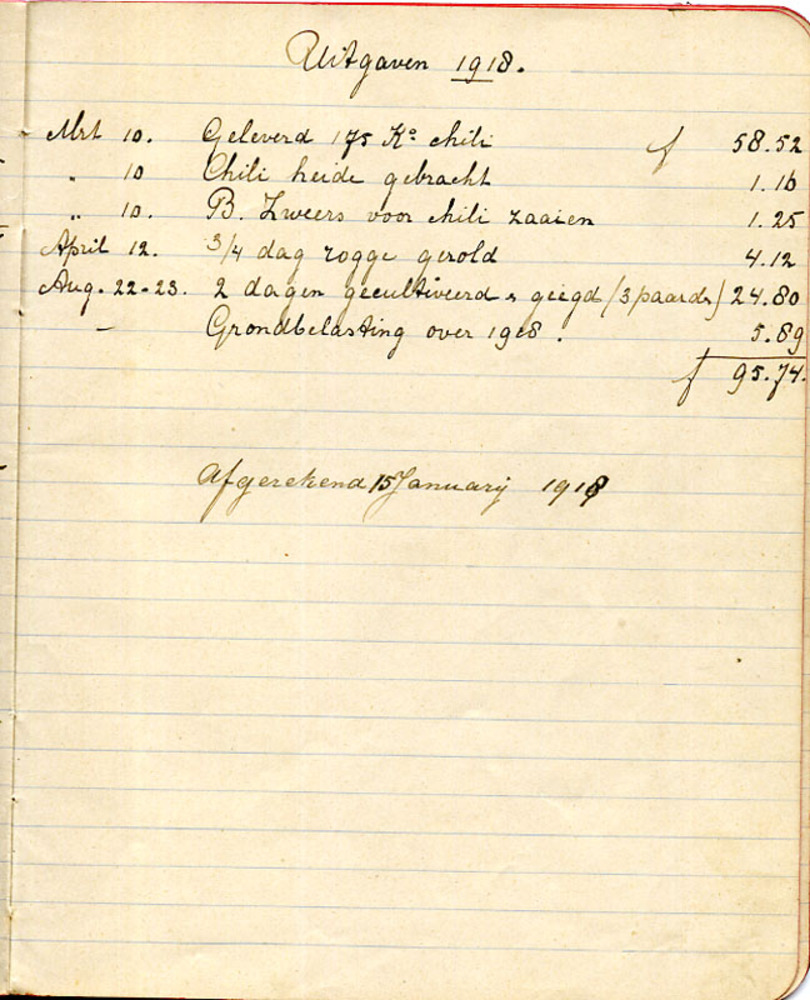 Uitgaven 1918.
Mrt 10. Geleverd 175 Ko chili f 58.52
" 10 Chili heide gebracht 1.16
" 10. B. Zweers voor chili zaaien 1.25
April 12. 3/4 dag rogge gerold 4.12
Aug. 22-23. 2 dagen gecultiveerd & geëgd (3 paards) 24.80
— Grondbelasting over 1918. 5.89
f 95.74.
Afgerekend 15 Januarij 1919